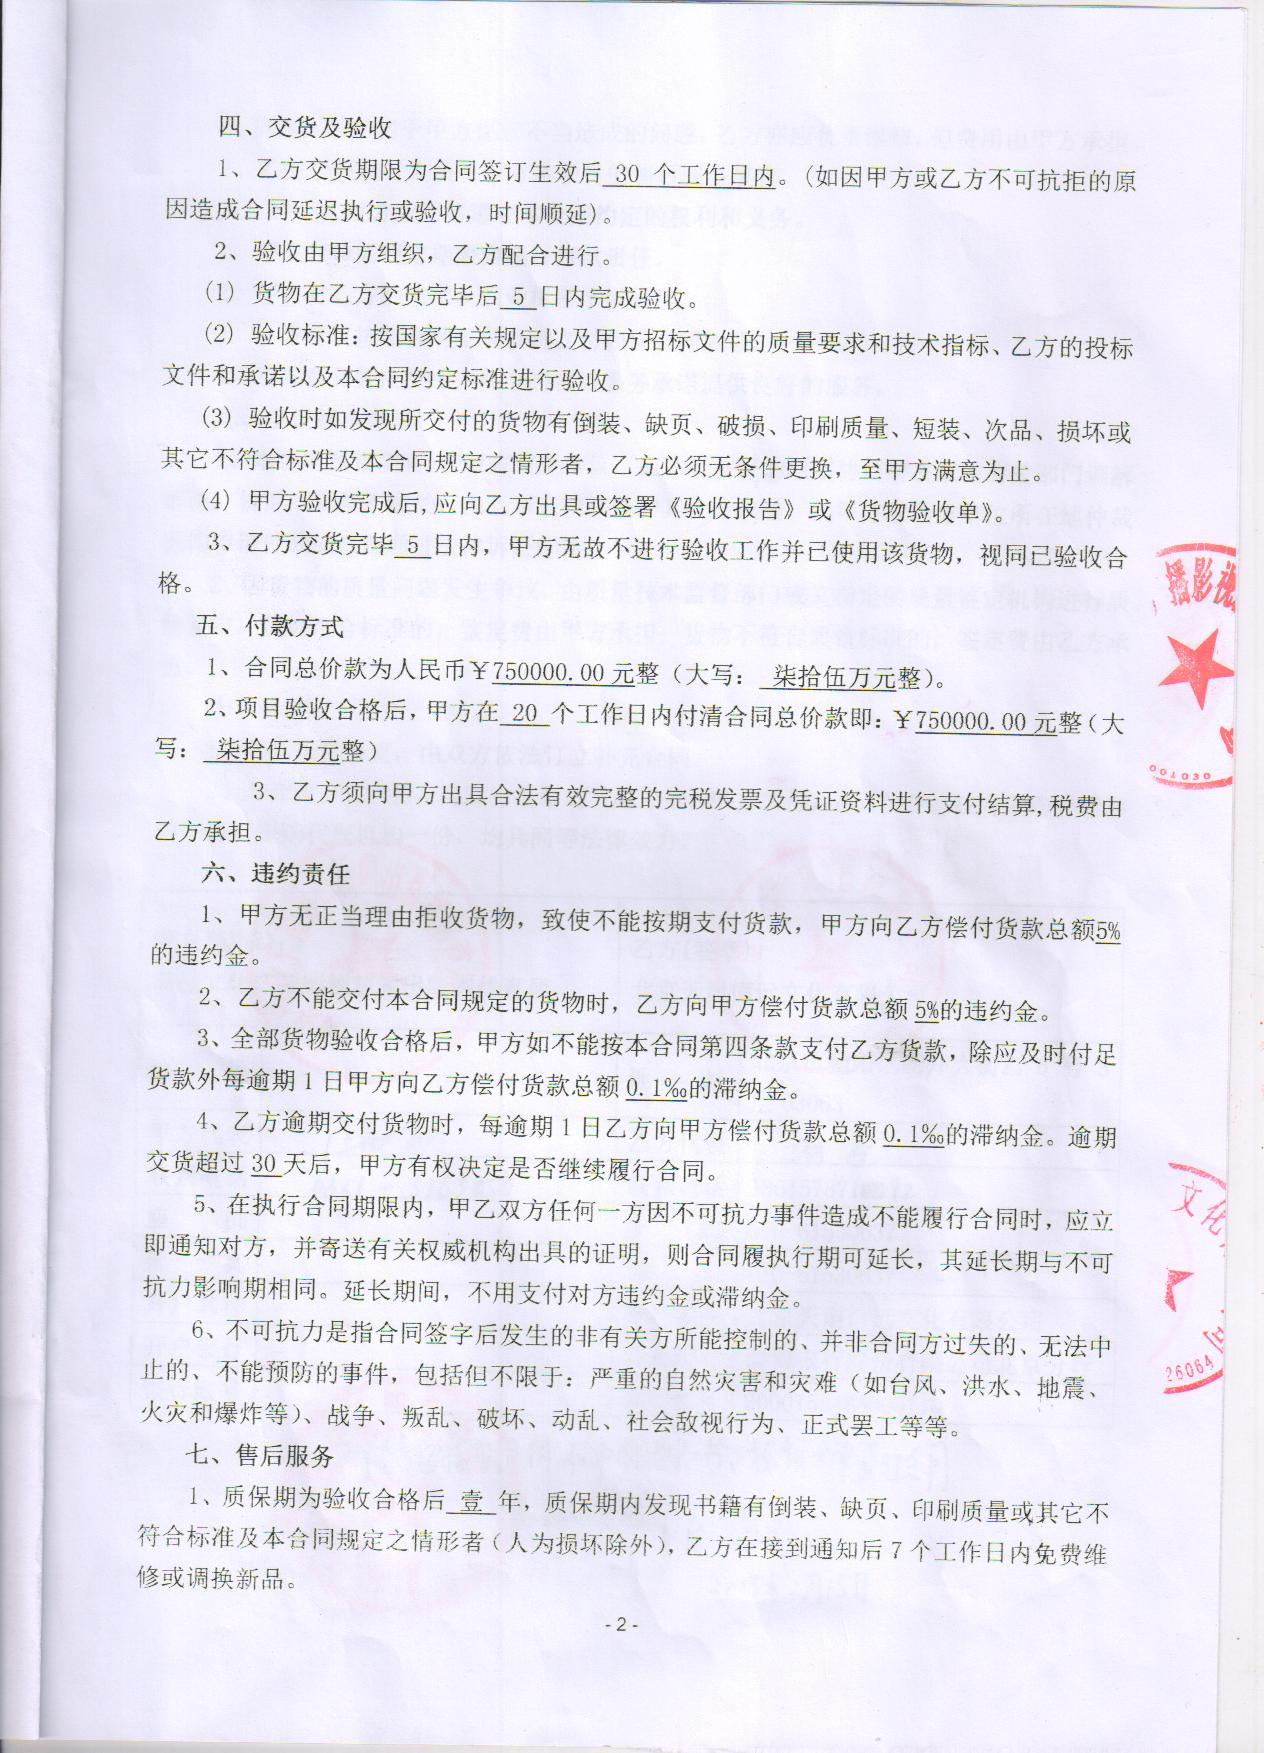 四、交货及验收
1、乙方交货期限为合同签订生效后 30 个工作日内。(如因甲方或乙方不可抗拒的原
因造成合同延迟执行或验收，时间顺延)。
2、验收由甲方组织，乙方配合进行。
(1) 货物在乙方交货完毕后 5 日内完成验收。
(2) 验收标准：按国家有关规定以及甲方招标文件的质量要求和技术指标、乙方的投标
文件和承诺以及本合同约定标准进行验收。
(3) 验收时如发现所交付的货物有倒装、缺页、破损、印刷质量、短装、次品、损坏或
其它不符合标准及本合同规定之情形者，乙方必须无条件更换，至甲方满意为止。
(4) 甲方验收完成后,应向乙方出具或签署《验收报告》或《货物验收单》。
3、乙方交货完毕 5 日内，甲方无故不进行验收工作并已使用该货物，视同已验收合
格。
五、付款方式
1、合同总价款为人民币￥750000.00 元整（大写： 柒拾伍万元整）。
2、项目验收合格后，甲方在 20 个工作日内付清合同总价款即：￥750000.00 元整（大
写： 柒拾伍万元整）
3、乙方须向甲方出具合法有效完整的完税发票及凭证资料进行支付结算,税费由
乙方承担。
六、违约责任
1、甲方无正当理由拒收货物，致使不能按期支付货款，甲方向乙方偿付货款总额5%
的违约金。
2、乙方不能交付本合同规定的货物时，乙方向甲方偿付货款总额 5%的违约金。
3、全部货物验收合格后，甲方如不能按本合同第四条款支付乙方货款，除应及时付足
货款外每逾期 1 日甲方向乙方偿付货款总额 0.1‰的滞纳金。
4、乙方逾期交付货物时，每逾期 1 日乙方向甲方偿付货款总额 0.1‰的滞纳金。逾期
交货超过 30 天后，甲方有权决定是否继续履行合同。
5、在执行合同期限内，甲乙双方任何一方因不可抗力事件造成不能履行合同时，应立
即通知对方，并寄送有关权威机构出具的证明，则合同履执行期可延长，其延长期与不可
抗力影响期相同。延长期间，不用支付对方违约金或滞纳金。
6、不可抗力是指合同签字后发生的非有关方所能控制的、并非合同方过失的、无法中
止的、不能预防的事件，包括但不限于：严重的自然灾害和灾难（如台风、洪水、地震、
火灾和爆炸等）、战争、叛乱、破坏、动乱、社会敌视行为、正式罢工等等。
七、售后服务
1、质保期为验收合格后 壹 年，质保期内发现书籍有倒装、缺页、印刷质量或其它不
符合标准及本合同规定之情形者（人为损坏除外），乙方在接到通知后 7 个工作日内免费维
修或调换新品。
- 2 -
播影视
001030
文化
司
26064